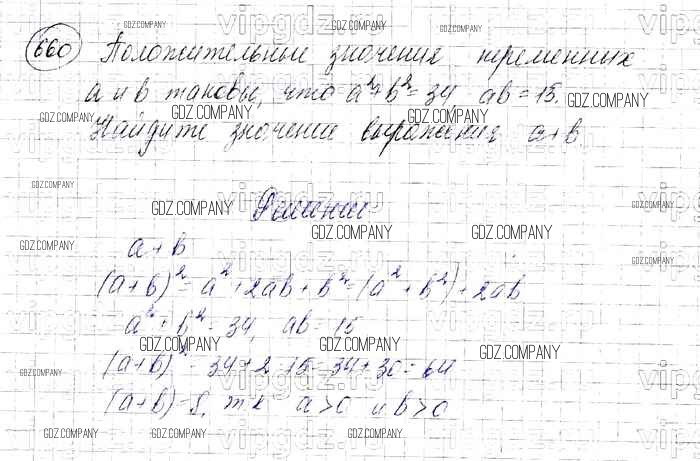 660 Положительные значения переменных
a и b таковы, что a²+b²=34, ab=15.
Найдите значение выражения a+b
Решение
a+b
(a+b)²=a²+2ab+b²=(a²+b²)+2ab
a²+b²=34, ab=15
(a+b)²=34+2·15=34+30=64
(a+b)=8, т.к. a>0 и b>0
GDZ.COMPANY
vipgdz.ru